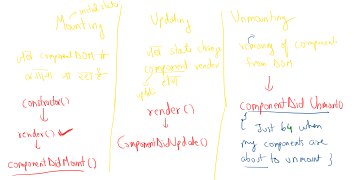 initial state
Mounting
component DOM में
constructor()
render()
componentDidMount()
Updating
state change
component render
update होना
render()
ComponentDidUpdate()
Unmounting
removing of components
from DOM
componentDid Unmount()
{ Just by when
my components are
about to unmount }